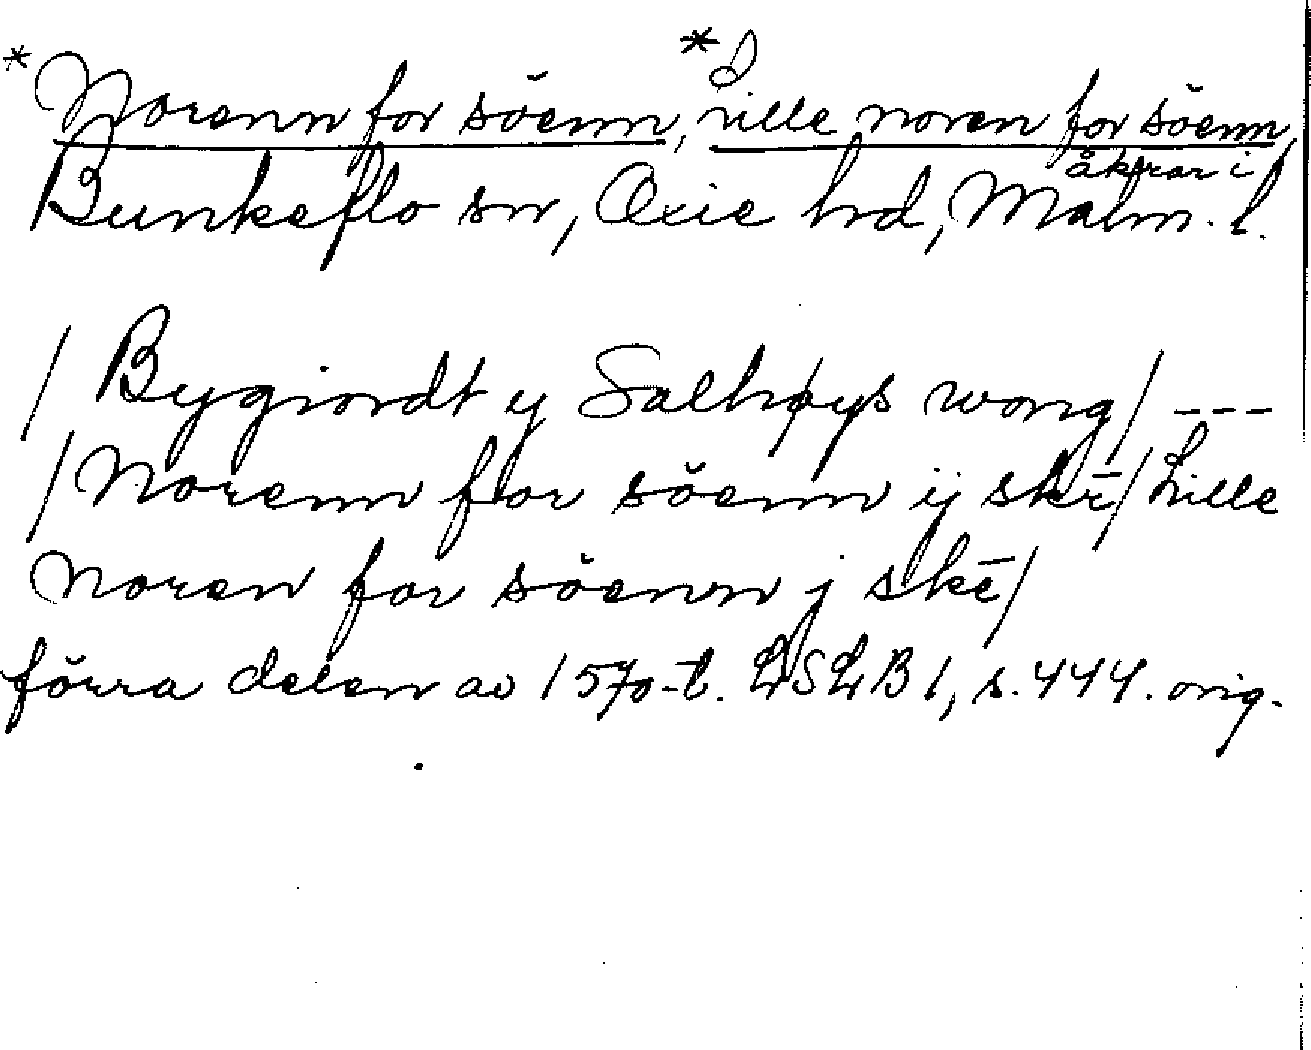 *Norenn for söenn, *Lille noren for söenn,
åkrar i
Bunkeflo sn, Oxie hd, Malm. l.
/ Bygiordt y Salhøys wong / ---
/ Norenn for söenn ij skē / Lille
noren for söenn j skē /
förra delen av 1570-t. LSLB 1, s. 444. orig.